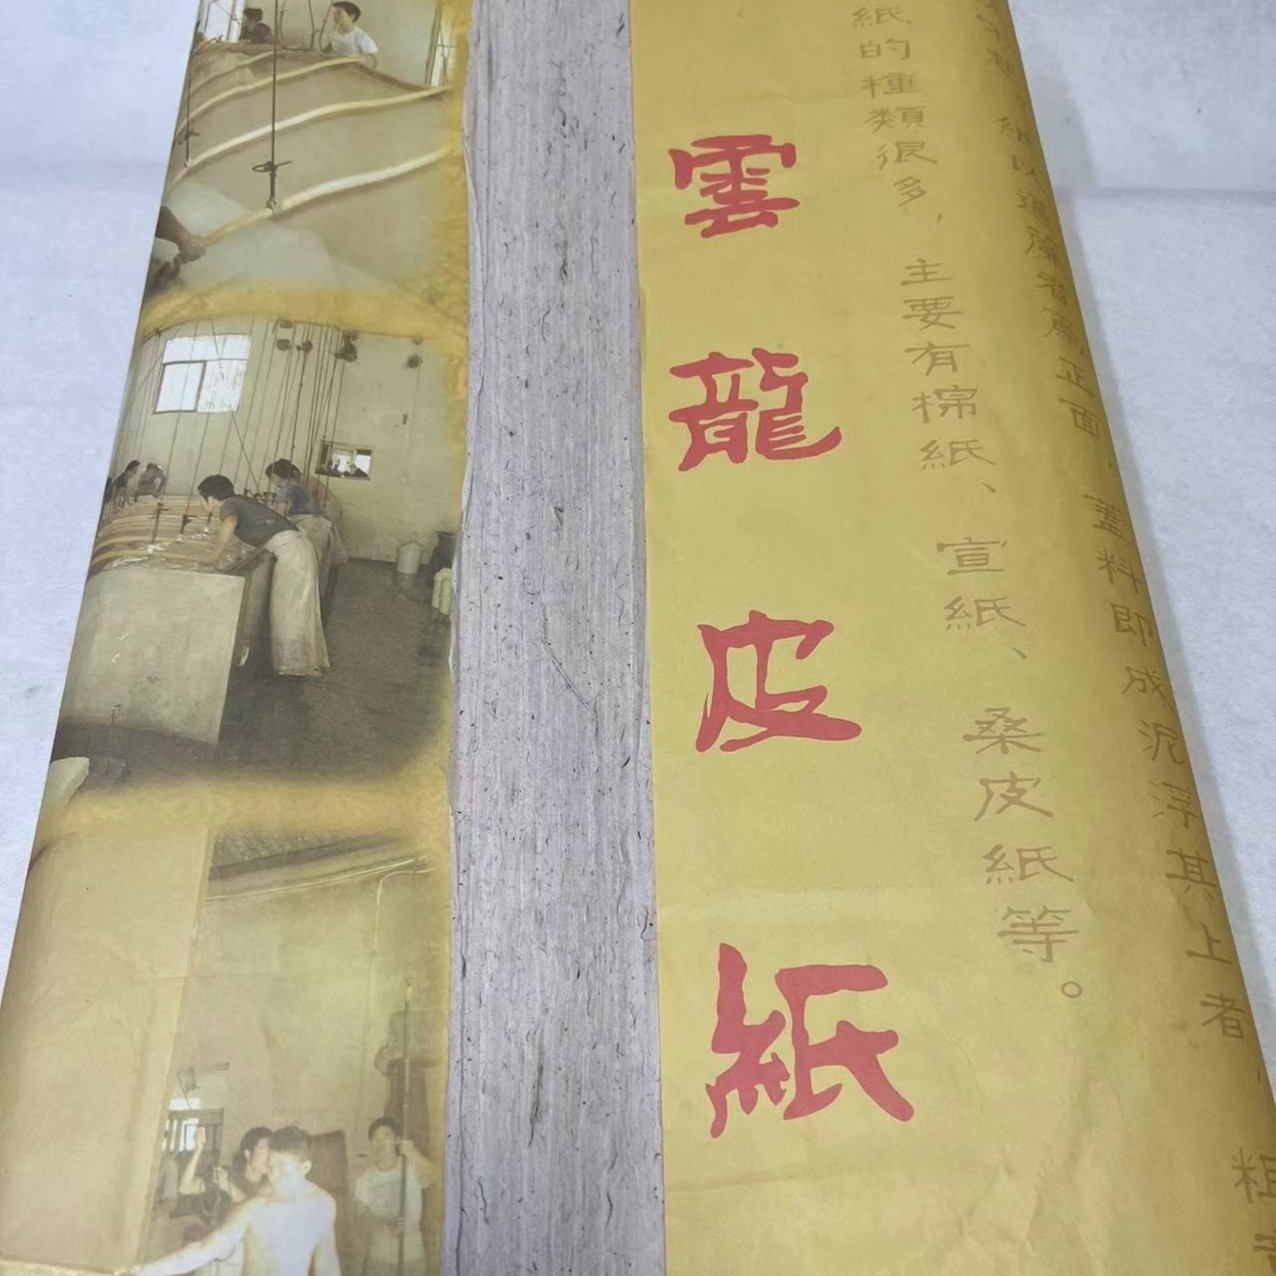 紙以進藻者為正面，蓋料即成泥浮其上者，粗
紙的種類很多，主要有棉紙、宣紙、桑皮紙等。
雲龍皮紙